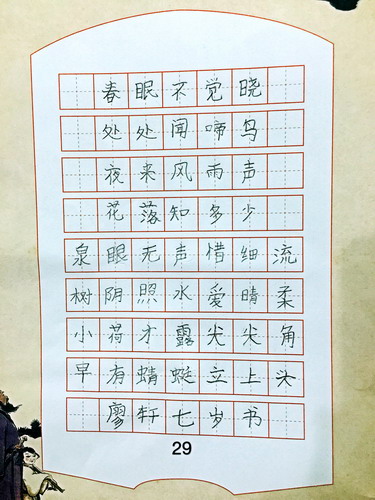 春眠不觉晓
处处闻啼鸟
夜来风雨声
花落知多少
泉眼无声惜细流
树阴照水爱晴柔
小荷才露尖尖角
早有蜻蜓立上头
廖轩七岁书
29